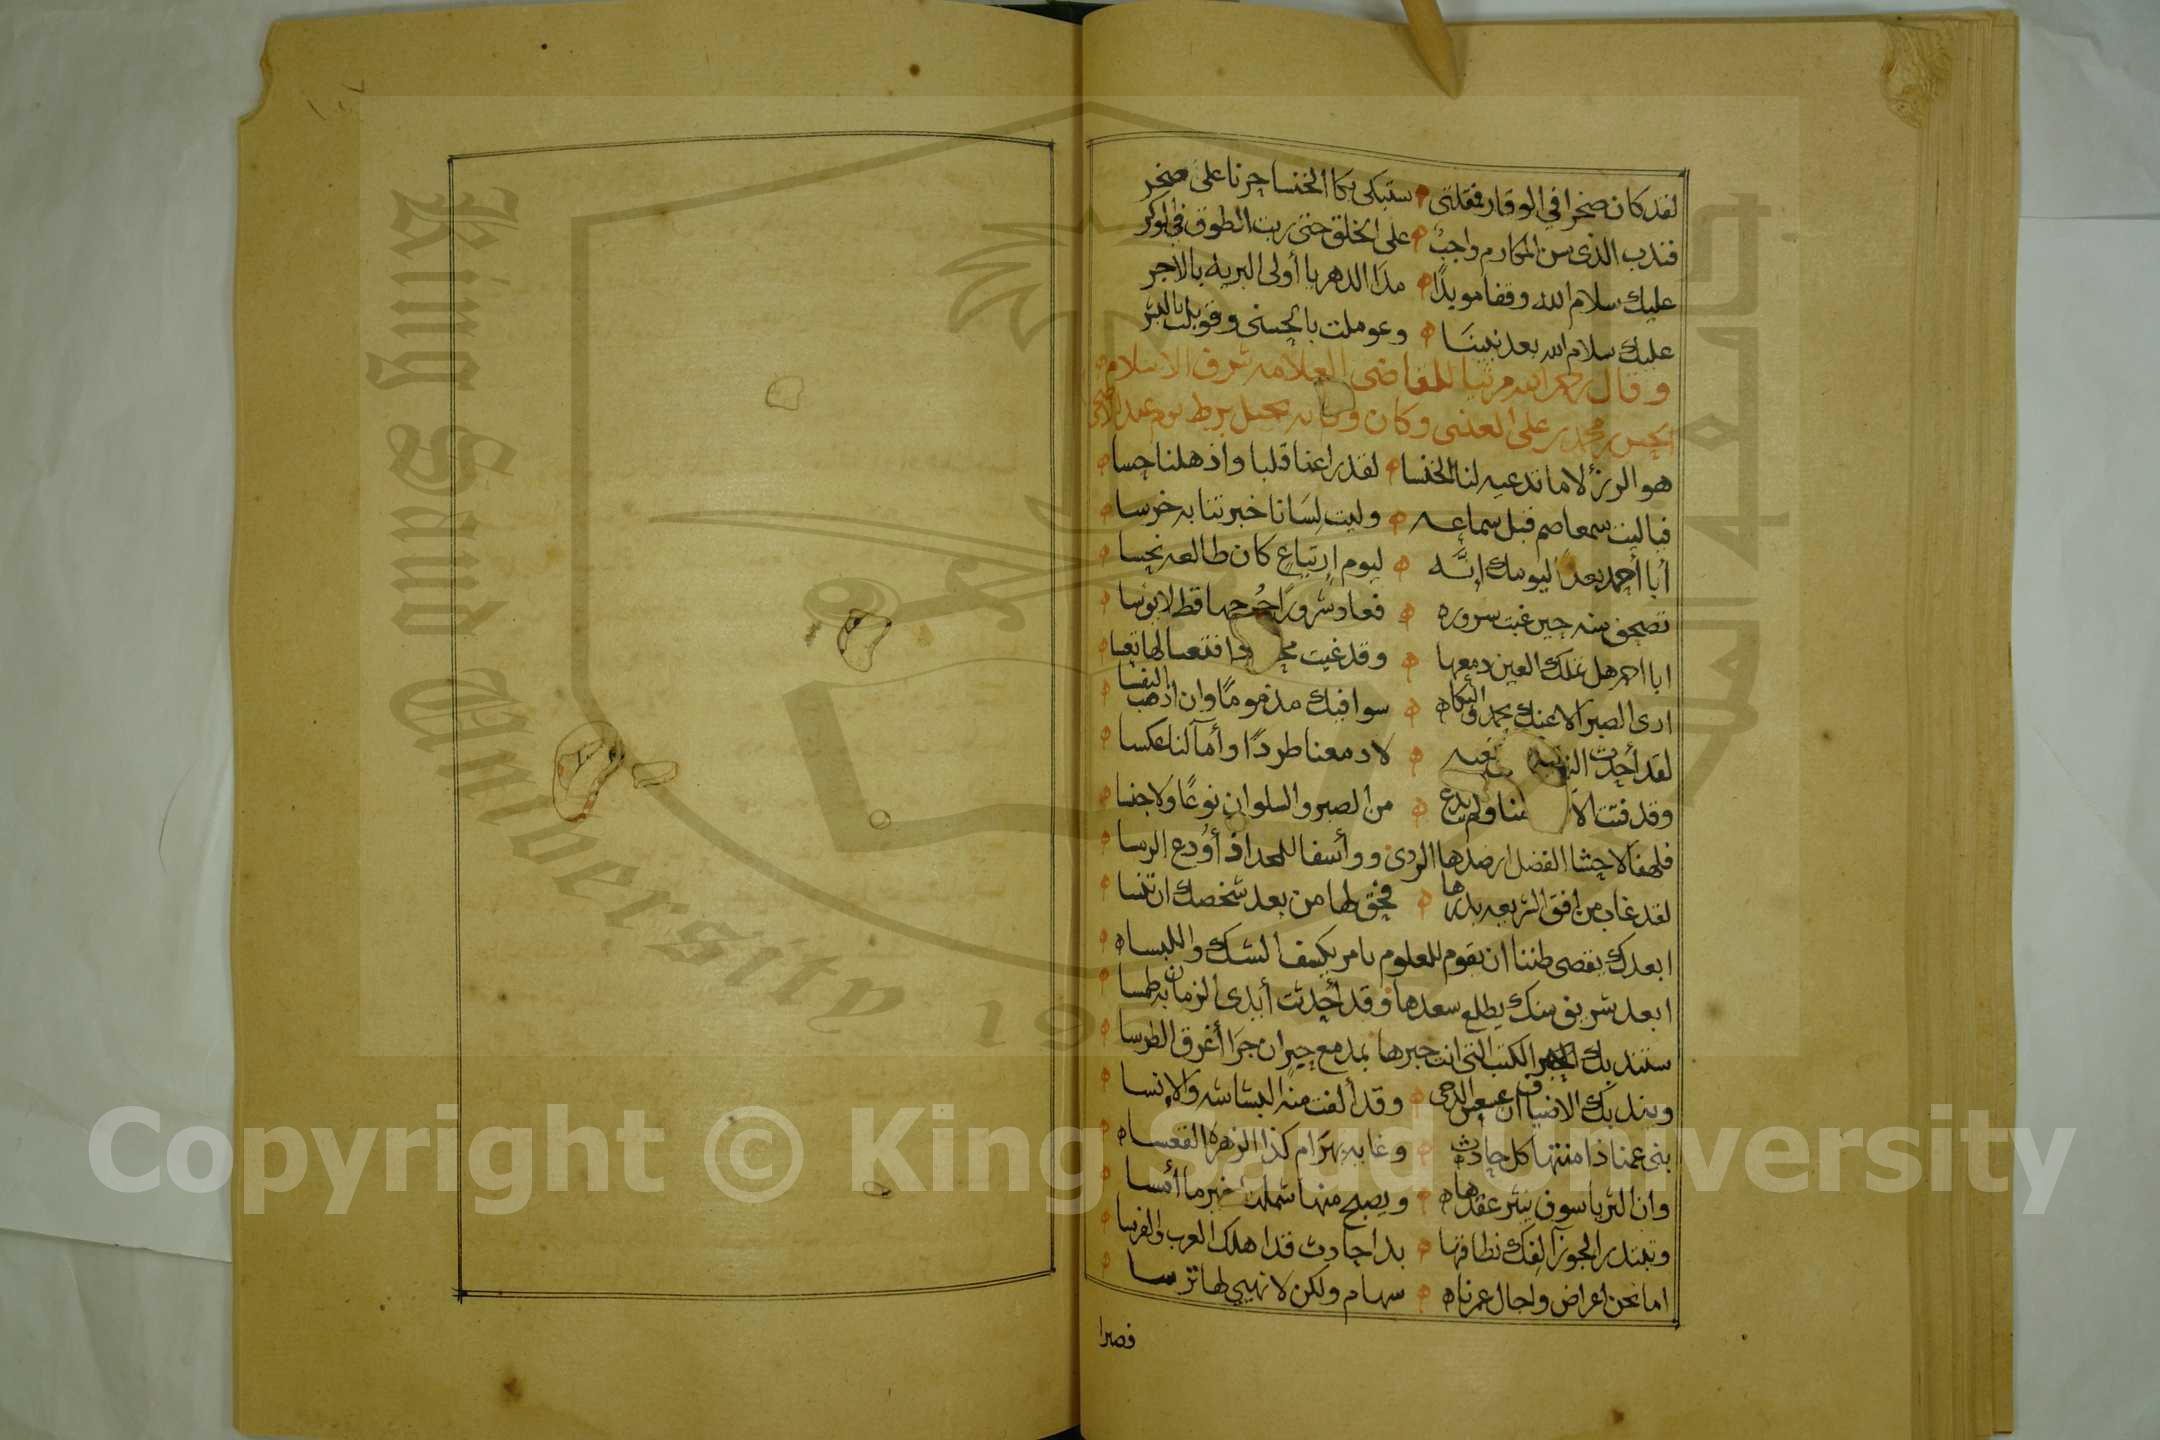 لقد كان صخرا في الوقار فقلتى ستبكى بكا الخنسا حزنا على صخر
فندب الذى سن المكارم واجبٌ على الخلق حتى ربت الطوق في الوكر
عليك سلام الله وقفا مويدًا مدَا الدهر يا أولى البريه بالاجر
عليك سلام الله بعد نبينَا وعوملت بالحسنى وقوبلت بالبر
وقال رحمه الله مرثيا للقاضى العلامه شرف الاسلام
الحسن بن محمد بن على العنسى وكان وفاته بجبل برط يوم عيد الاضحى
هو الرزؤ لا ما تدعيه لنا الخنسا لقد راعنا قلبا واذهلنا حسا
فياليت سمعا صم قبل سماعه وليت لسَانا خبرتنا به خرسا
أبا أحمد بعدًا ليومك انَّه ليوم ارتياعٍ كان طالعه نحسا
تصحف منه حين غبت سروره فعاد شرورًا
ابا احمد هل تملك العين دمعها وقد غيبت فتعسا لها تعسا
ارى الصبر الا عنك يحمد والبكاه سوا فيك مذمومًا وان اذهب النفسا
لقد أحدث لا دمعنا طردًا وأمآ لنا عكسا
وقد فتت منا ولم يدع من الصبر والسلوان نوعًا ولا جنسا
فلهفا لاحشا الفضل ارصدها الردى ووأسفا للمجد اذ أوْدع الرمسا
لقد غاب من افق الشريعه بدرها فحق لها من بعد شخصك ان تنسا
ابعدك يقصى ظننا ان يقوم للعلوم بامر يكشف الشك واللبساه
ابعد شريق منك يطلع سعدها وقد أحدثت أيدى الزمان به طمسا
ستندبك الكتب التى انت حبرها بمدمع حبران جرَا أغرق الطرسا
ويندبك الاضياف ان عسعس الدجى وقد ألفت منه البشاشه والانسا
بنى عمنا ذا منتها كل حادث وغايه بهرَام كذا الزهرة القعساه
وان الثريا سوف ينثر عقدهاه ويصبح منها شملها غير ما أمسا
وتبتدر الجوزآ لفك نطاقها بدا حادث قد اهلك العرب والفرسا
اما نحن اعراض واجال عمرناه سهام ولكن لا نهيي لها ترسا
فصبرا
King Saud University 19
Copyright © King Saud University